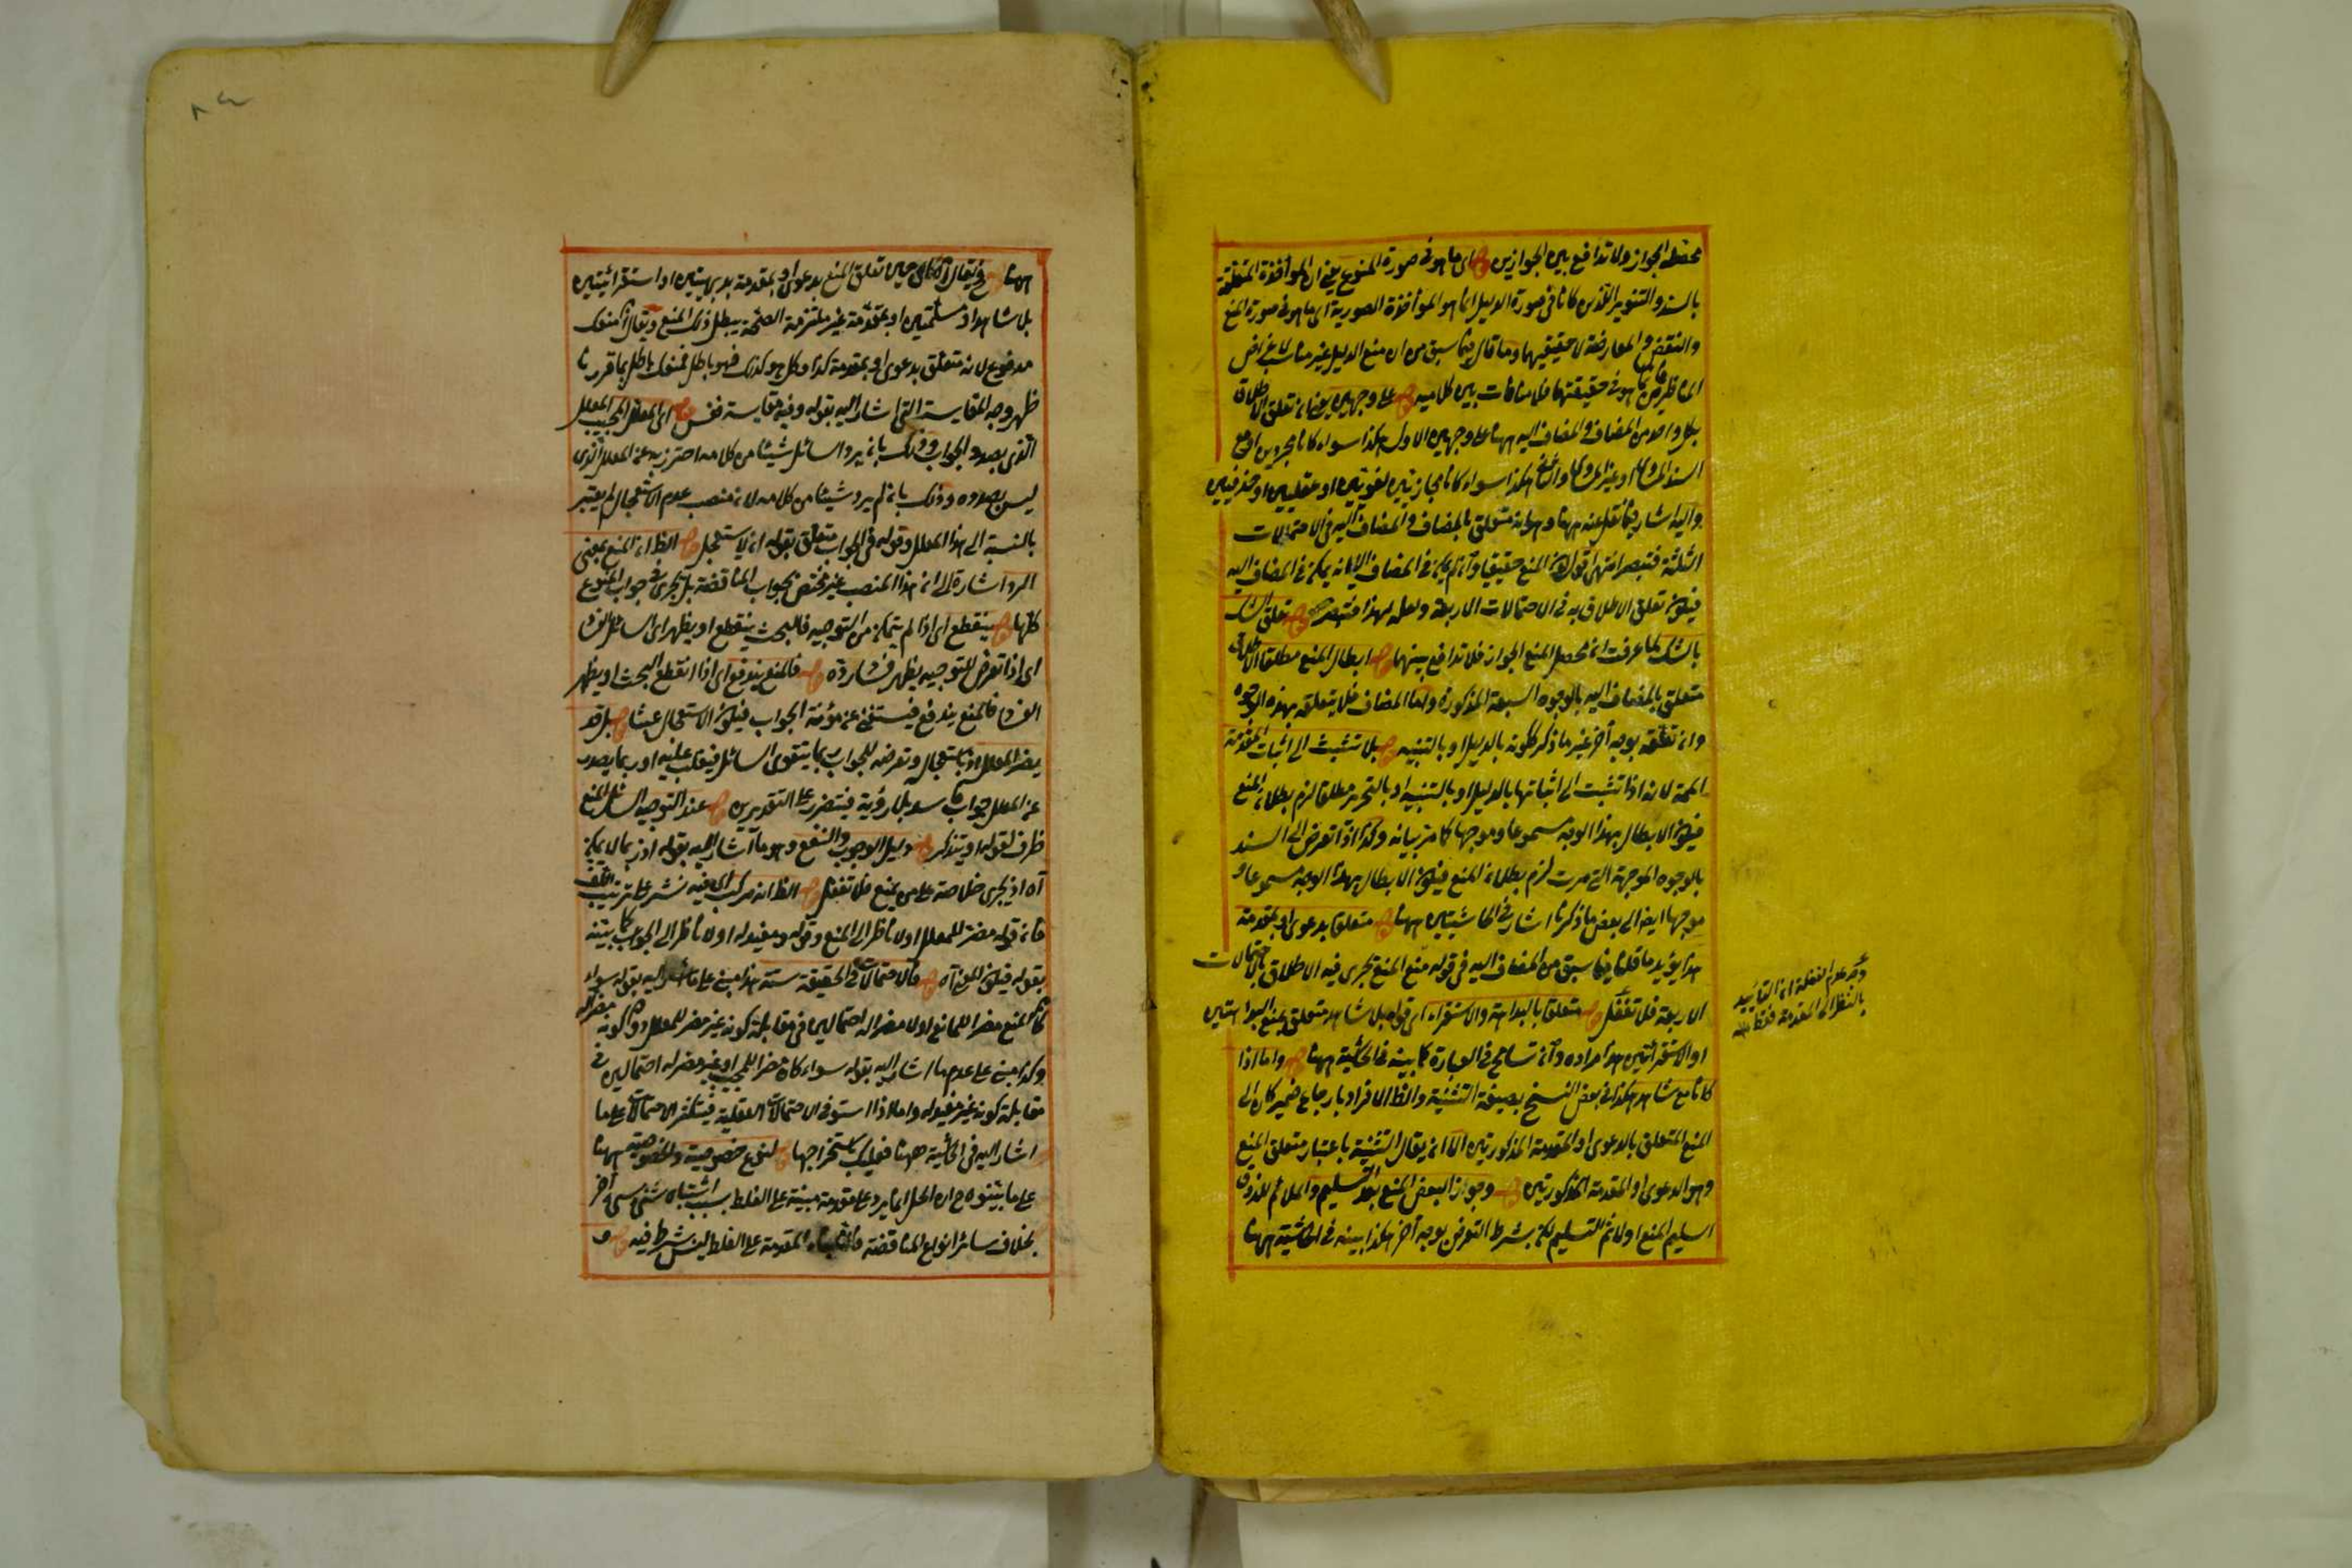 محصله الجواز ولا تدافع بين الجوازين قوله اى ما هو فى صورة المنوع يعنى ان المؤاخذة المتعلقة
بالسند والتنوير اللذين كانا فى صورة الدليل انما هو المؤاخذة الصورية اى ما هو فى صورة المنع
والنقض والمعارضة لا حقيقيها وما قال فيما سبق من ان منع الدليل غير مناسب لاغراض
المناظرين ما هو فى حقيقتها فلا منافات بين كلاميه قوله على وجهين يعنى ان تعلق الاطلاق
بكل واحد من المضاف والمضاف اليه ههنا على وجهين الاول هكذا سواء كانا مجردين او مع
السند المساوى او غير المساوى والثانى هكذا سواء كانا مجازيين لغويين او عقليين او حذفيين
واليه اشار فيما نقل عنه ههنا وهو انه متعلق بالمضاف والمضاف اليه فى الاحتمالات
الثلثة فتبصر انتهى اقول المنع حقيقيا وان لم يمكن فى المضاف الا انه يمكن فى المضاف اليه
فيكون تعلق الاطلاق به فى الاحتمالات الاربعة ولعله لهذا فتبصر قوله تعلق الشك
بالشك لما عرفت ان محصل المنع الجواز فلا تدافع بينهما قوله ابطال المنع مطلقا الاطلاق
متعلق بالمضاف اليه بالوجوه السبعة المذكورة واما المضاف فلا يتعلقه بهذه الوجوه
وان تعلقه بوجه آخر غير ما ذكر ككونه بالدليل او بالتنبيه قوله بلا تشبث الى اثبات المقدمة
الممنوعة لانه اذا تشبث الى اثباتها بالدليل او بالتنبيه او بالتحرير مطلقا لزم بطلان المنع
فيكون الابطال بهذا الوجه مسموعا وموجها كما مر بيانه وكذا اذا تعرض الى السند
بالوجوه الموجهة التى مرت لزم بطلان المنع فيكون الابطال بهذا الوجه مسموعا و
موجها ايضا الى بعض ما ذكرنا اشار فى الحاشيتين ههنا قوله متعلقا بدعوى او بمقدمة
هذا يؤيد ما قلنا فيما سبق من المضاف اليه فى قوله منع المنع تجرى فيه الاطلاق بالاحتمالات
الاربعة فلا تغفل قوله متعلقا بالبداهة والاستقراء اى قوله بلا شاهد متعلق بمنع البداهتين
او الاستقرائيتين هذا مراده وان تسامح فى العبارة كما بينه فى الحاشية ههنا قوله واما اذا
كانا مع شاهد هكذا فى بعض النسخ بصيغة التثنية والظ الافراد بارجاع ضمير كان الى
المنع المتعلق بالدعوى او المقدمة المذكورتين الا ان يقال التثنية باعتبار متعلق المنع
وهو الدعوى او المقدمة المذكورتين قوله وجواز البعض المنع بعد التسليم والملائم للذوق
اسليم المنع اولا ثم التسليم لكن بشرط التعرض بوجه آخر هكذا بينه فى الحاشية ههنا
وجه عدم الغفلة ان التأييد
بالنظر الى المقدمة فقط
ههنا قوله فيقال اى حين تعلق المنع بدعوى او بمقدمة بديهيتين او استقرائيتين
بلا شاهد او مسلمتين او بمقدمة غير ملتزمة الصحة يبطل ذلك المنع ويقال منعك
مدفوع لانه متعلق بدعوى او بمقدمة كذا وكل هو كذلك فهو باطل فمنعك باطل بما قررنا
ظهر وجه المقايسة التى اشار اليه بقوله وفيه مقايسة فقس قوله اى المعلل المجيب المعلل
الذى بصدد الجواب وذلك بان يرد السائل شيئا من كلامه احترز به عن المعلل الذى
ليس بصدده وذلك بان لم يرد شيئا من كلامه لان منصب عدم الاستعجال لم يعتبر
بالنسبة الى هذا المعلل وقوله فى الجواب متعلق بقوله ان لا يستعجل قوله الظ ان المنع بمعنى
الرد اشارة الى ان هذا المنصب غير مختص بجواب المناقضة بل يجرى فى جواب المنوع
كلها قوله ينقطع اى اذا لم يتمكن من التوجيه فالبحث ينقطع او يظهر اى السائل الفساد
اى اذا تعرض للتوجيه يظهر فساده قوله فالمنع يندفع اى اذا انقطع البحث او يظهر
الفساد فالمنع يندفع فيستغنى عن مؤنة الجواب فيكون الاستعجال عبثا قوله بل قد
يضر المعلل اذ باستعجاله وتعرضه للجواب ربما يتقوى السائل فيغلب عليه او ربما يصدر
عن المعلل جواب بلا روية فيتضرر على التقديرين قوله عند التوجيه السائل المنع
ظرف لقوله او يتذكر قوله دليل الوجوب والنفع وهو ما اشار اليه بقوله اذ ربما لا يمكن
آه اذ يجرى خلاصته على من يمنع فلا تغفل قوله الظ انه مركب اى فيه نشر على ترتيب اللف
فان قوله مضر للمعلل او لا ناظر الى المنع وقوله ومفيد له او لا ناظر الى الجواب كما بينه
بقوله فيكون المعنى آه قوله فالاحتمالات فى الحقيقة ستة هذا مبنى على ما اشار اليه بقوله سواء
كان المنع مضر اللمانع او لا مضر اله احتمالين فى مقابلة كونه غير مضر للمعلل وكونه مضر اله
وكذا مبنى على عدم ما اشار اليه بقوله سواء كان مضر اللمجيب او غير مضر له احتمالين فى
مقابلة كونه غير مفيد له واما اذا استوفى الاحتمالات العقلية فيتكثر الاحتمالات على ما
اشار اليه فى الحاشية ههنا فعليك باستخراجها قوله لنوع خصوصية والخصوصية ههنا
على ما بينوه ان الحل انما يرد على مقدمة مبنية على الغلط بسبب اشتباه شئ بشئ آخر
بخلاف سائر انواع المناقضة فان المقدمة على الغلط ليس بشرط فيه قوله و